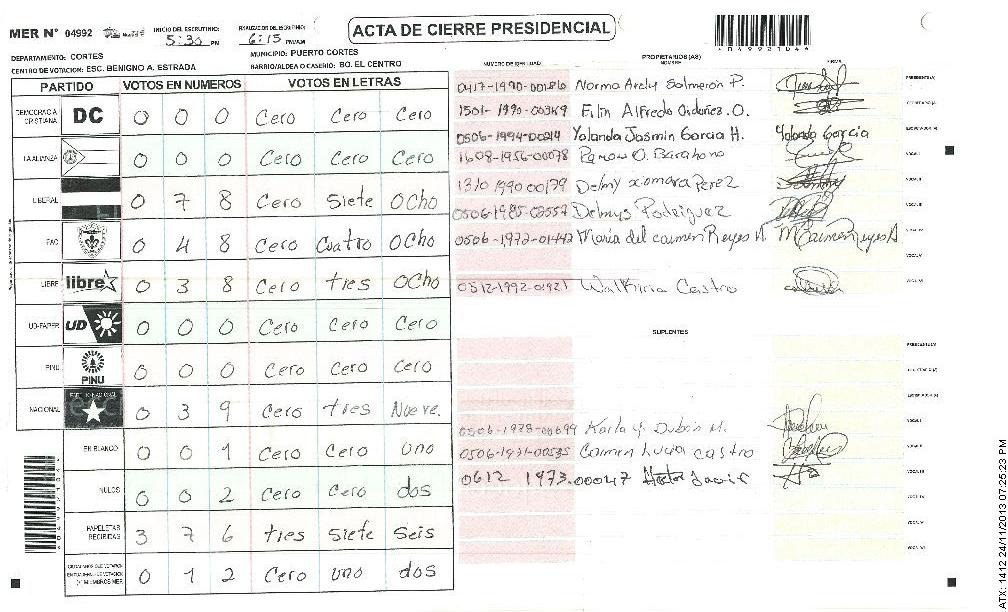 MER N° 04992 INICIO DEL ESCRUTINIO: 5:30 PM FINALIZACION DEL ESCRUTINIO: 6:15 PM/AM
ACTA DE CIERRE PRESIDENCIAL
DEPARTAMENTO: CORTES MUNICIPIO: PUERTO CORTES
CENTRO DE VOTACION: ESC. BENIGNO A. ESTRADA BARRIO/ALDEA O CASERIO: BO. EL CENTRO
PARTIDO VOTOS EN NUMEROS VOTOS EN LETRAS
DEMOCRACIA CRISTIANA DC 0 0 0 Cero Cero Cero
LA ALIANZA 0 0 0 Cero Cero Cero
LIBERAL 0 7 8 Cero Siete Ocho
PAC 0 4 8 Cero Cuatro Ocho
LIBRE libre 0 3 8 Cero tres Ocho
UD-FAPER UD 0 0 0 Cero Cero Cero
PINU PINU 0 0 0 Cero Cero Cero
NACIONAL 0 3 9 Cero tres Nueve.
EN BLANCO 0 0 1 Cero Cero uno
NULOS 0 0 2 Cero Cero dos
PAPELETAS RECIBIDAS 3 7 6 tres Siete Seis
0 1 2 Cero uno dos
PROPIETARIOS (AS)
NUMERO DE IDENTIDAD NOMBRE FIRMA
0417-1990-00186 Norma Arely Salmerón P. PRESIDENTE(A)
1501-1990-00369 Elin Alfredo Ordoñez. O.
0506-1994-00214 Yolanda Jasmin Garcia H. Yolanda Garcia
1608-1956-00078 Ramon O. Barahona
1310 1990 00179 Delmy xiomara Perez
0506-1985-02557 Delmys Rodriguez
0506-1972-01442 Maria del carmen Reyes A. M Carmen Reyes A
0512-1992-01921 Walkiria Castro
SUPLENTES
PRESIDENTE(A)
0506-1978-00699 Karla Y Dubón M.
0506-1971-00535 Carmen Lucia Castro
0612 1973.00047 Hector Javier
ATX: 1412 24/11/2013 07:25:23 PM